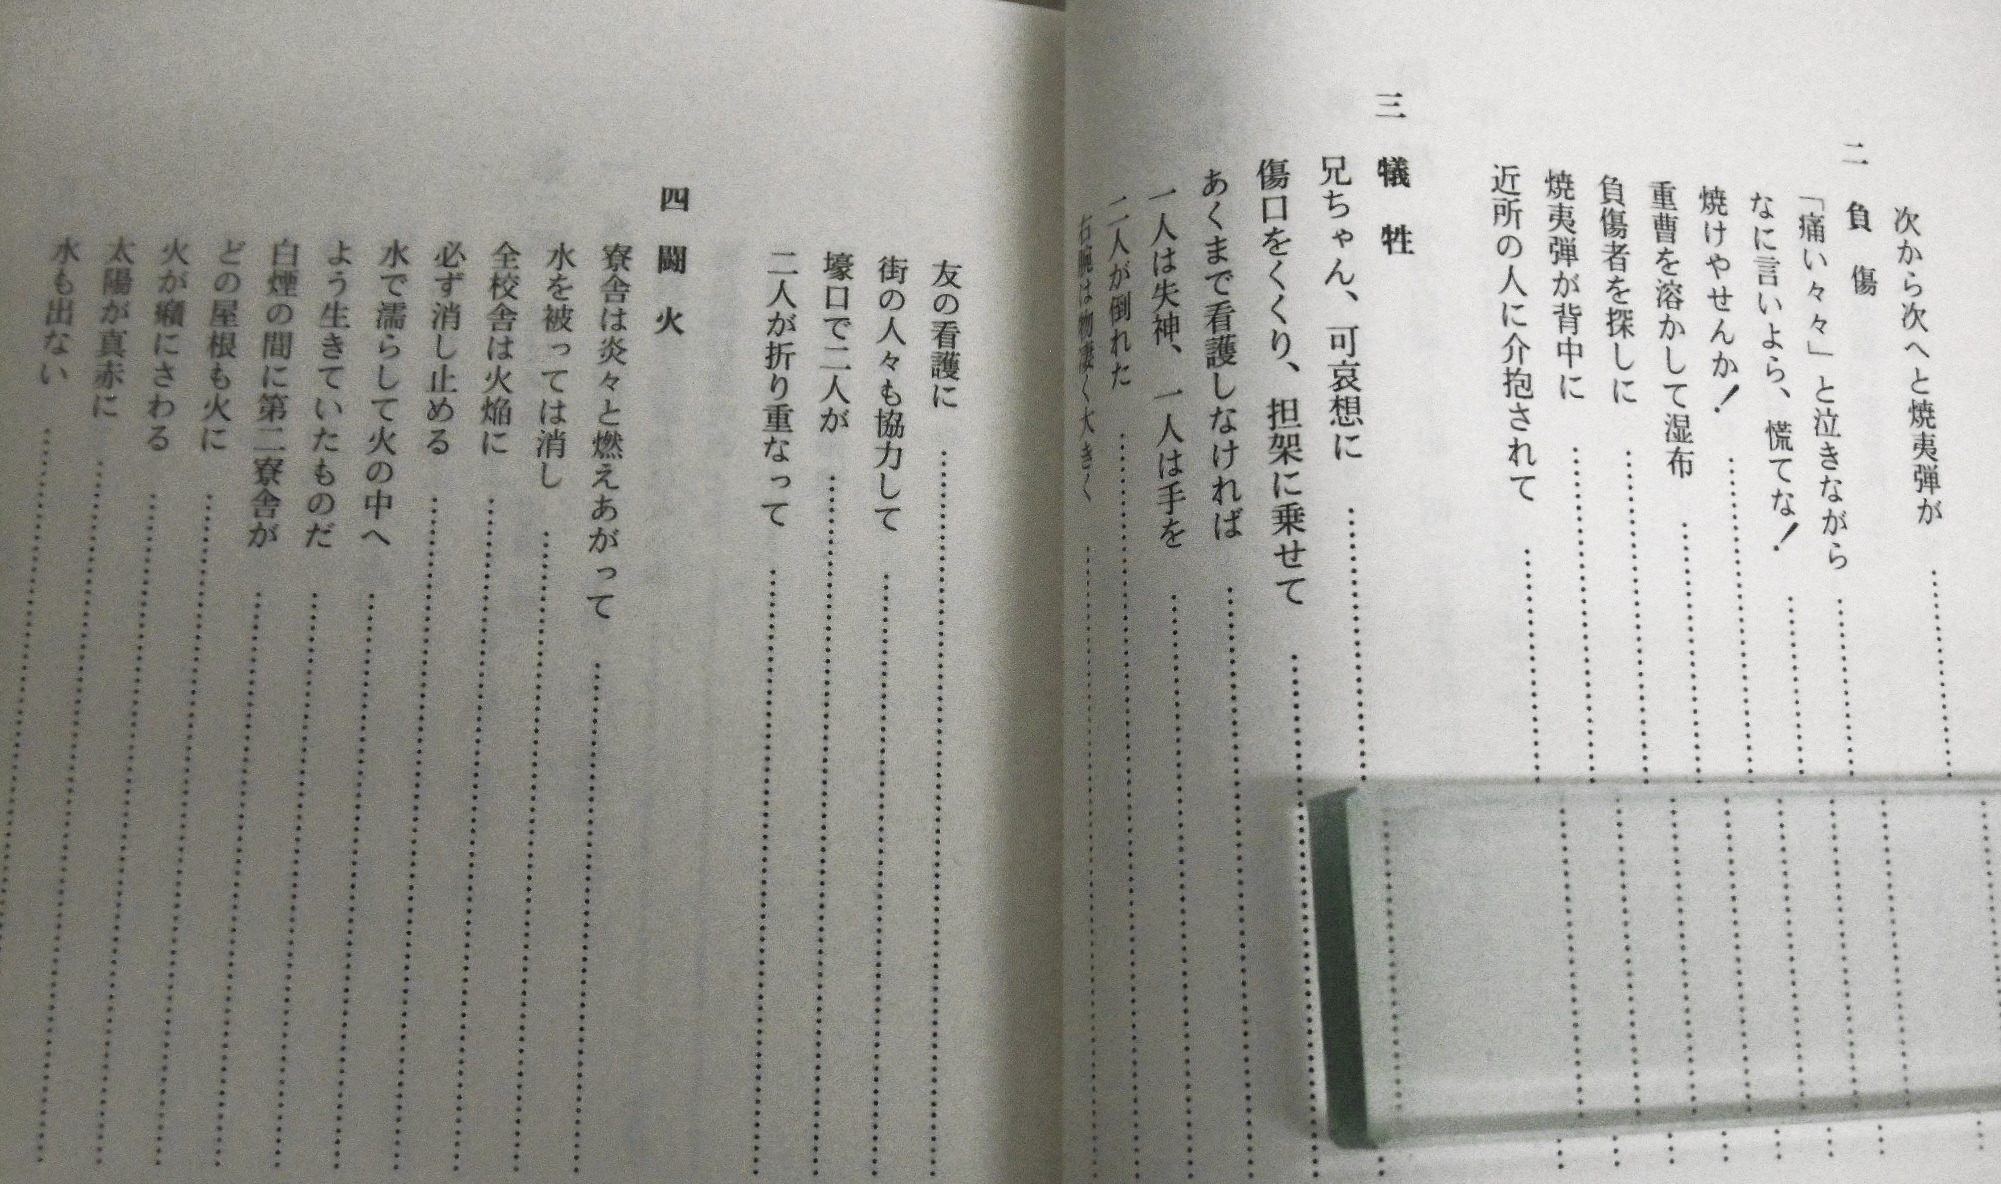 次から次へと焼夷弾が
二 負傷
「痛い々々」と泣きながら
なに言いよら、慌てな！
焼けやせんか！
重曹を溶かして湿布
負傷者を探しに
焼夷弾が背中に
近所の人に介抱されて
三 犠牲
兄ちゃん、可哀想に
傷口をくくり、担架に乗せて
あくまで看護しなければ
一人は失神、一人は手を
二人が倒れた
右腕は物凄く大きく
友の看護に
街の人々も協力して
壕口で二人が
二人が折り重なって
四 闘火
寮舎は炎々と燃えあがって
水を被っては消し
全校舎は火焔に
必ず消し止める
水で濡らして火の中へ
よう生きていたものだ
白煙の間に第二寮舎が
どの屋根も火に
火が癪にさわる
太陽が真赤に
水も出ない